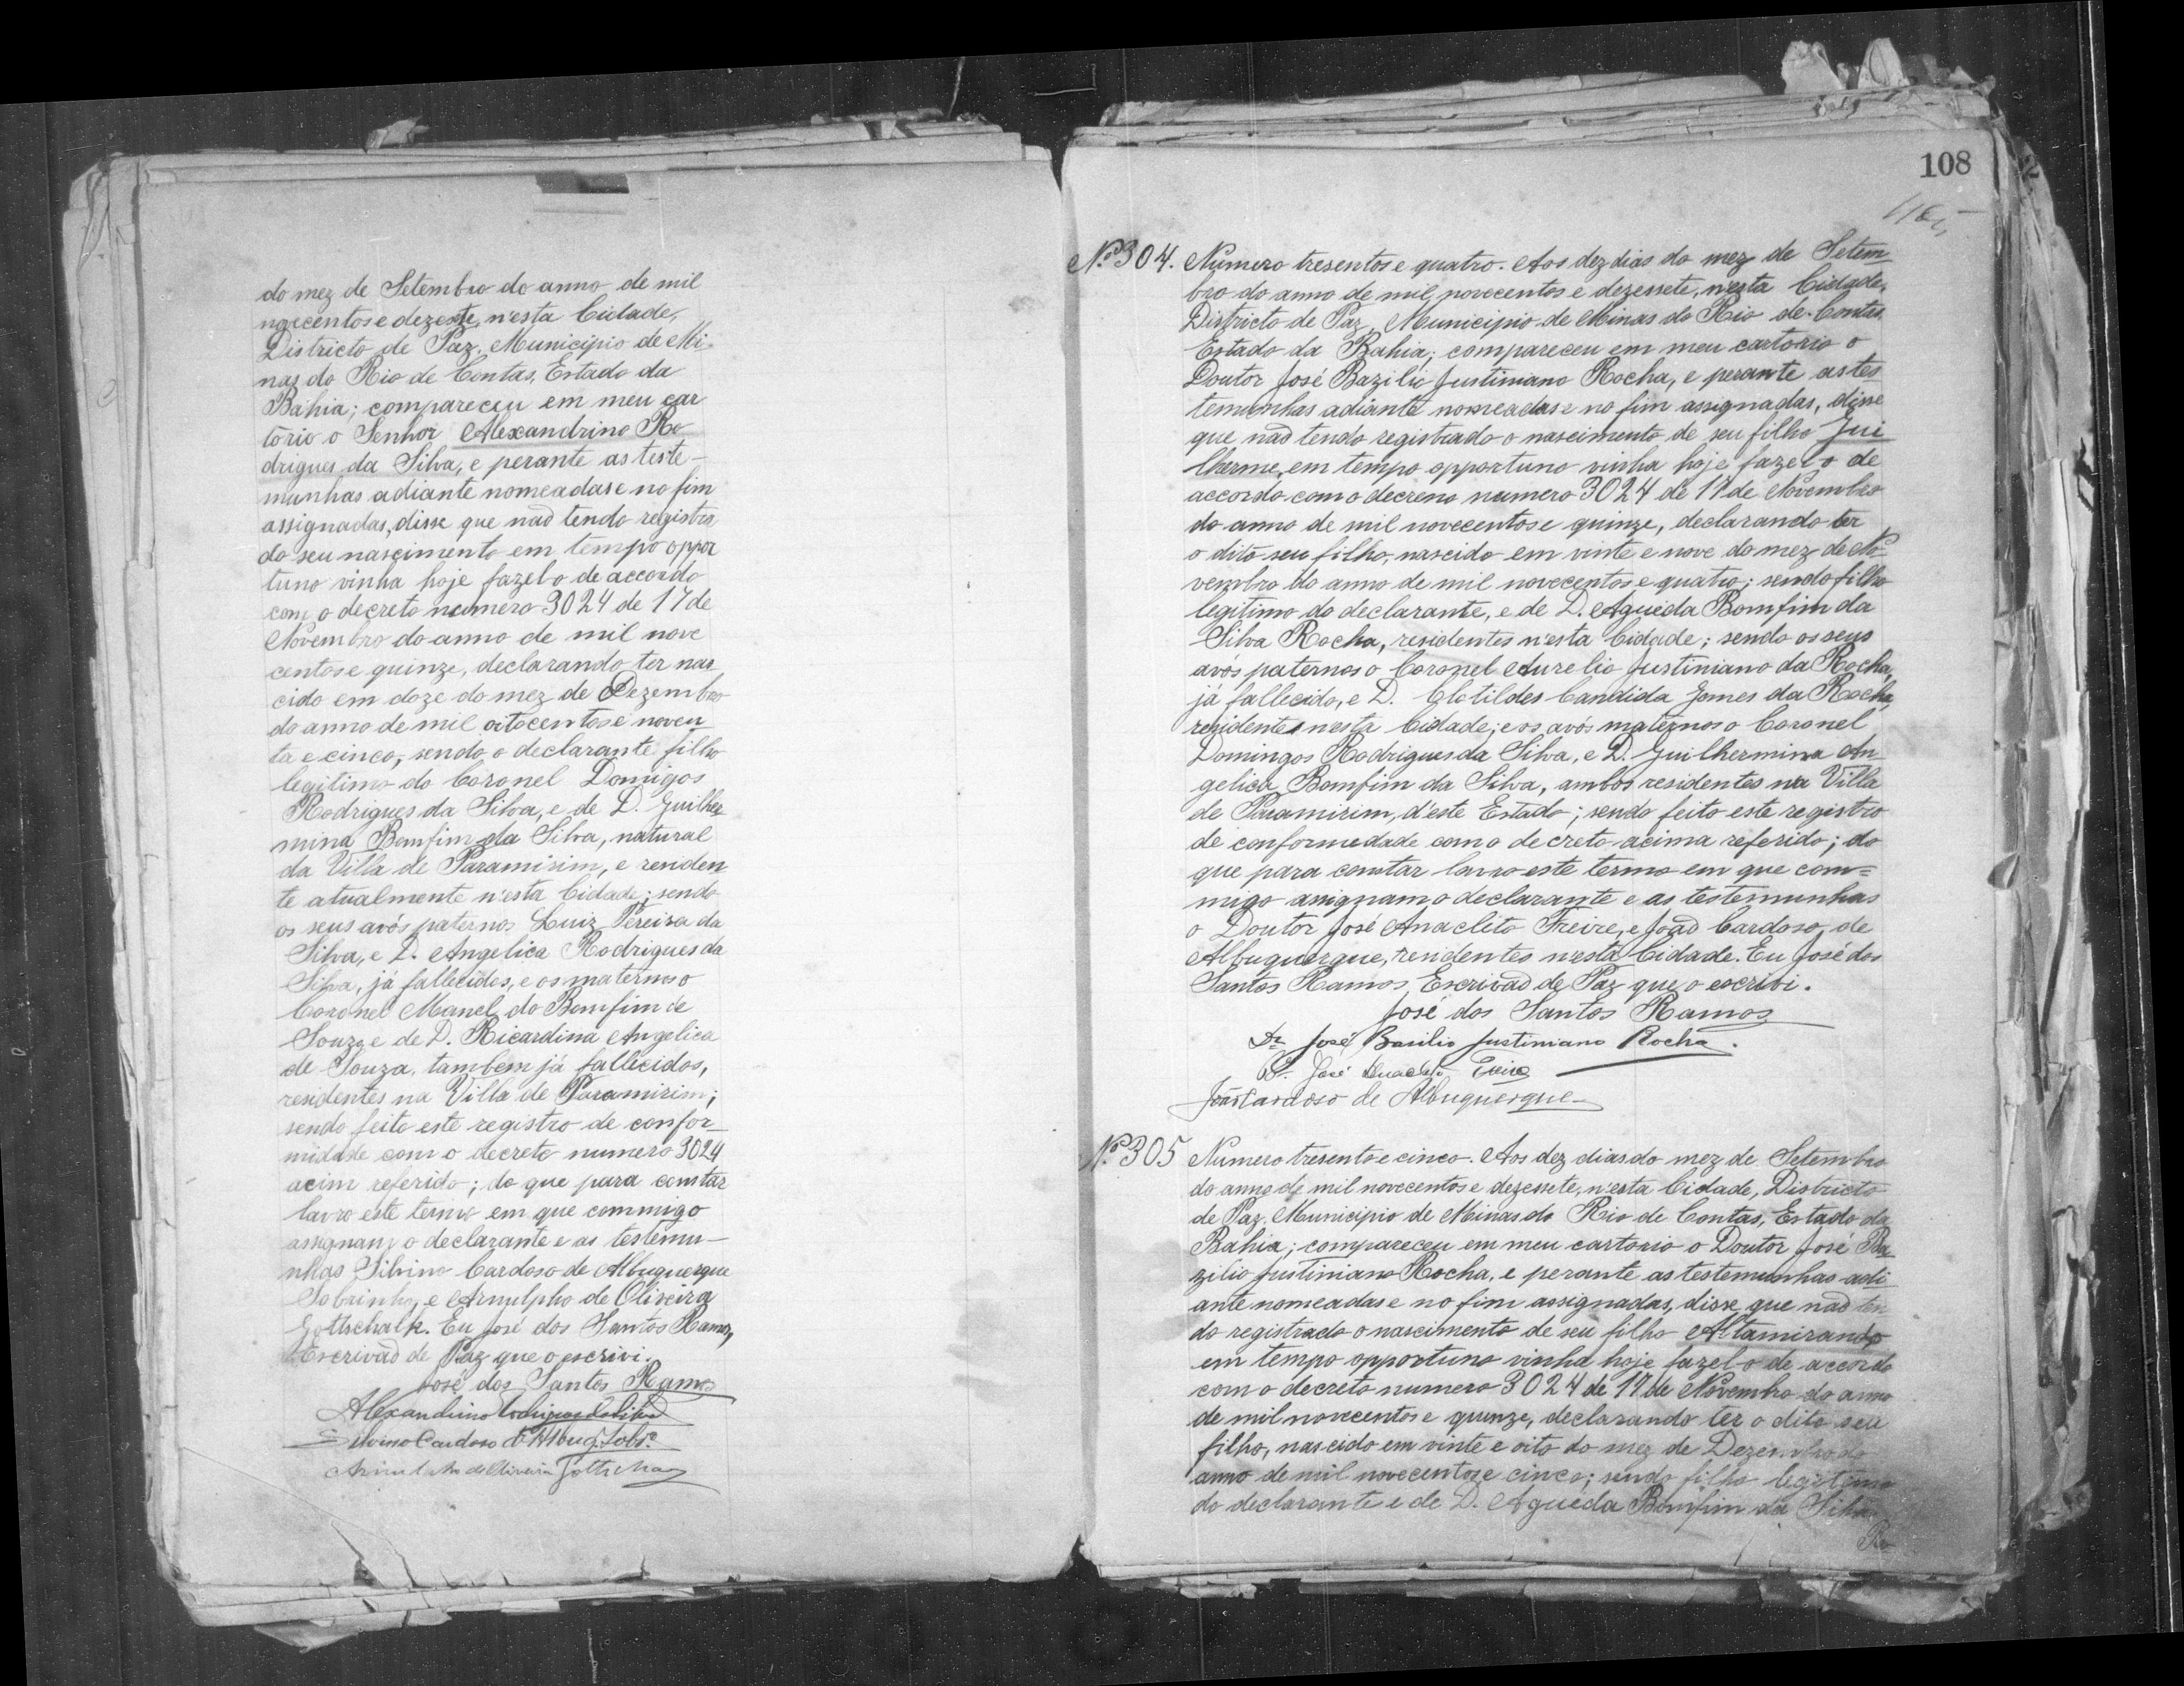 do mez de Setembro do anno de mil
novecentos e dezesete, n'esta Cidade,
Districto de Paz, Municipio de Mi-
nas do Rio de Contas, Estado da
Bahia; compareceu em meu car
torio o Senhor Alexandrino Ro
drigues da Silva, e perante as teste-
munhas adiante nomeadas e no fim
assignadas, disse que não tendo registra
do seu nascimento em tempo oppor
tuno vinha hoje fazel-o de accordo
com o decreto numero 3024 de 17 de
Novembro do anno de mil nove
centos e quinze, declarando ter nas
cido em doze do mez de Dezembro
do anno de mil oitocentos e noven
ta e cinco, sendo o declarante filho
legitimo do Coronel Domigos
Rodrigues da Silva, e de D. Guilher
mina Bomfim da Silva, natural
da Villa de Paramirim, e residen
te atualmente n'esta Cidade; sendo
os seus avós paternos Luiz Pereira da
Silva, e D. Angelica Rodrigues da
Silva, já fallecidos, e os maternos o
Coronel Manel do Bomfim de
Souza e de D. Ricardina Angelica
de Souza, tambem já fallecidos,
residentes na Villa de Paramirim;
sendo feito este registro de confor-
midade com o decreto numero 3024
acim referido; do que para constar
lavro este termo em que commigo
assignam o declarante e as testemu-
nhas Silvino Cardoso de Albuquerque
Sobrinho, e Arnulpho de Oliveira
Gottschalk. Eu José dos Santos Ramos,
Escrivão de Paz que o escrivi.
José dos Santos Ramos
Alexandrino Rodrigues da Silva
Silvino Cardoso d'Albuq. Sobr.º
Arnulpho de Oliveira Gottschalk
108
Nº 304. Numero tresentos e quatro. Aos dez dias do mez de Setem
bro do anno de mil novecentos e dezessete, n'esta Cidade,
Districto de Paz, Municipio de Minas do Rio de Contas,
Estado da Bahia; compareceu em meu cartorio o
Doutor José Bazilio Justiniano Rocha, e perante as tes
temunhas adiante nomeadas e no fim assignadas, disse
que não tendo registrado o nascimento de seu filho Gui
lherme, em tempo opportuno vinha hoje fazel-o de
accordo com o decreno numero 3024 de 17 de Novembro
do anno de mil novecentos e quinze, declarando ter
o dito seu filho, nascido em vinte e nove do mez de No
vembro do anno de mil novecentos e quatro; sendo filho
legitimo do declarante, e de D. Agueda Bomfim da
Silva Rocha, residentes n'esta Cidade; sendo os seus
avos paternos o Coronel Aurelio Justiniano da Rocha,
já fallecido, e D. Clotildes Candida Gomes da Rocha,
residente nesta Cidade; e os avós maternos o Coronel
Domingos Rodrigues da Silva, e D. Guilhermina An
gelica Bomfim da Silva, ambos residentes na Villa
de Paramirim, d'este Estado; sendo feito este registro
de conformedade com o decreto acima referido; do
que para constar lavro este termo em que com=
migo assignam o declarante e as testemunhas
o Doutor José Anacleto Freire, e João Cardoso de
Albuquerque, residentes n'esta Cidade. Eu José dos
Santos Ramos, Escrivão de Paz que o escrivi.
José dos Santos Ramos
Dr. José Basilio Justiniano Rocha.
Dr. José Anacleto Freire
João Cardoso de Albuquerque
Nº 305 Numero tresento e cinco. Aos dez dias do mez de Setembro
do anno de mil novecentos e dezessete, n'esta Cidade, Districto
de Paz, Municipio de Minas do Rio de Contas, Estado da
Bahia; compareceu em meu cartorio o Doutor José Ba
zilio Justiniano Rocha, e perante as testemunhas adi
ante nomeadas e no fim assignadas, disse que não ten
do registrado o nascimento de seu filho Altamirando,
em tempo opportuno vinha hoje fazel-o de accordo
com o decreto numero 3024 de 17 de Novembro do anno
de mil novecentos e quinze, declarando ter o dito seu
filho, nascido em vinte e oito do mez de Dezembro do
anno de mil novecentos e cinco; sendo filho legitimo
do declarante e de D. Agueda Bomfim da Silva
Ro